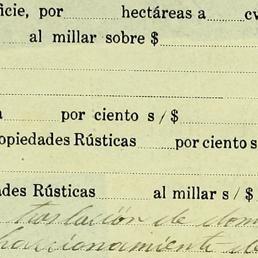 ficie, por hectáreas a cv
al millar sobre $
por ciento s/$
opiedades Rústicas por ciento s
des Rústicas al millar s/$
traslación de dom
fraccionamiento de